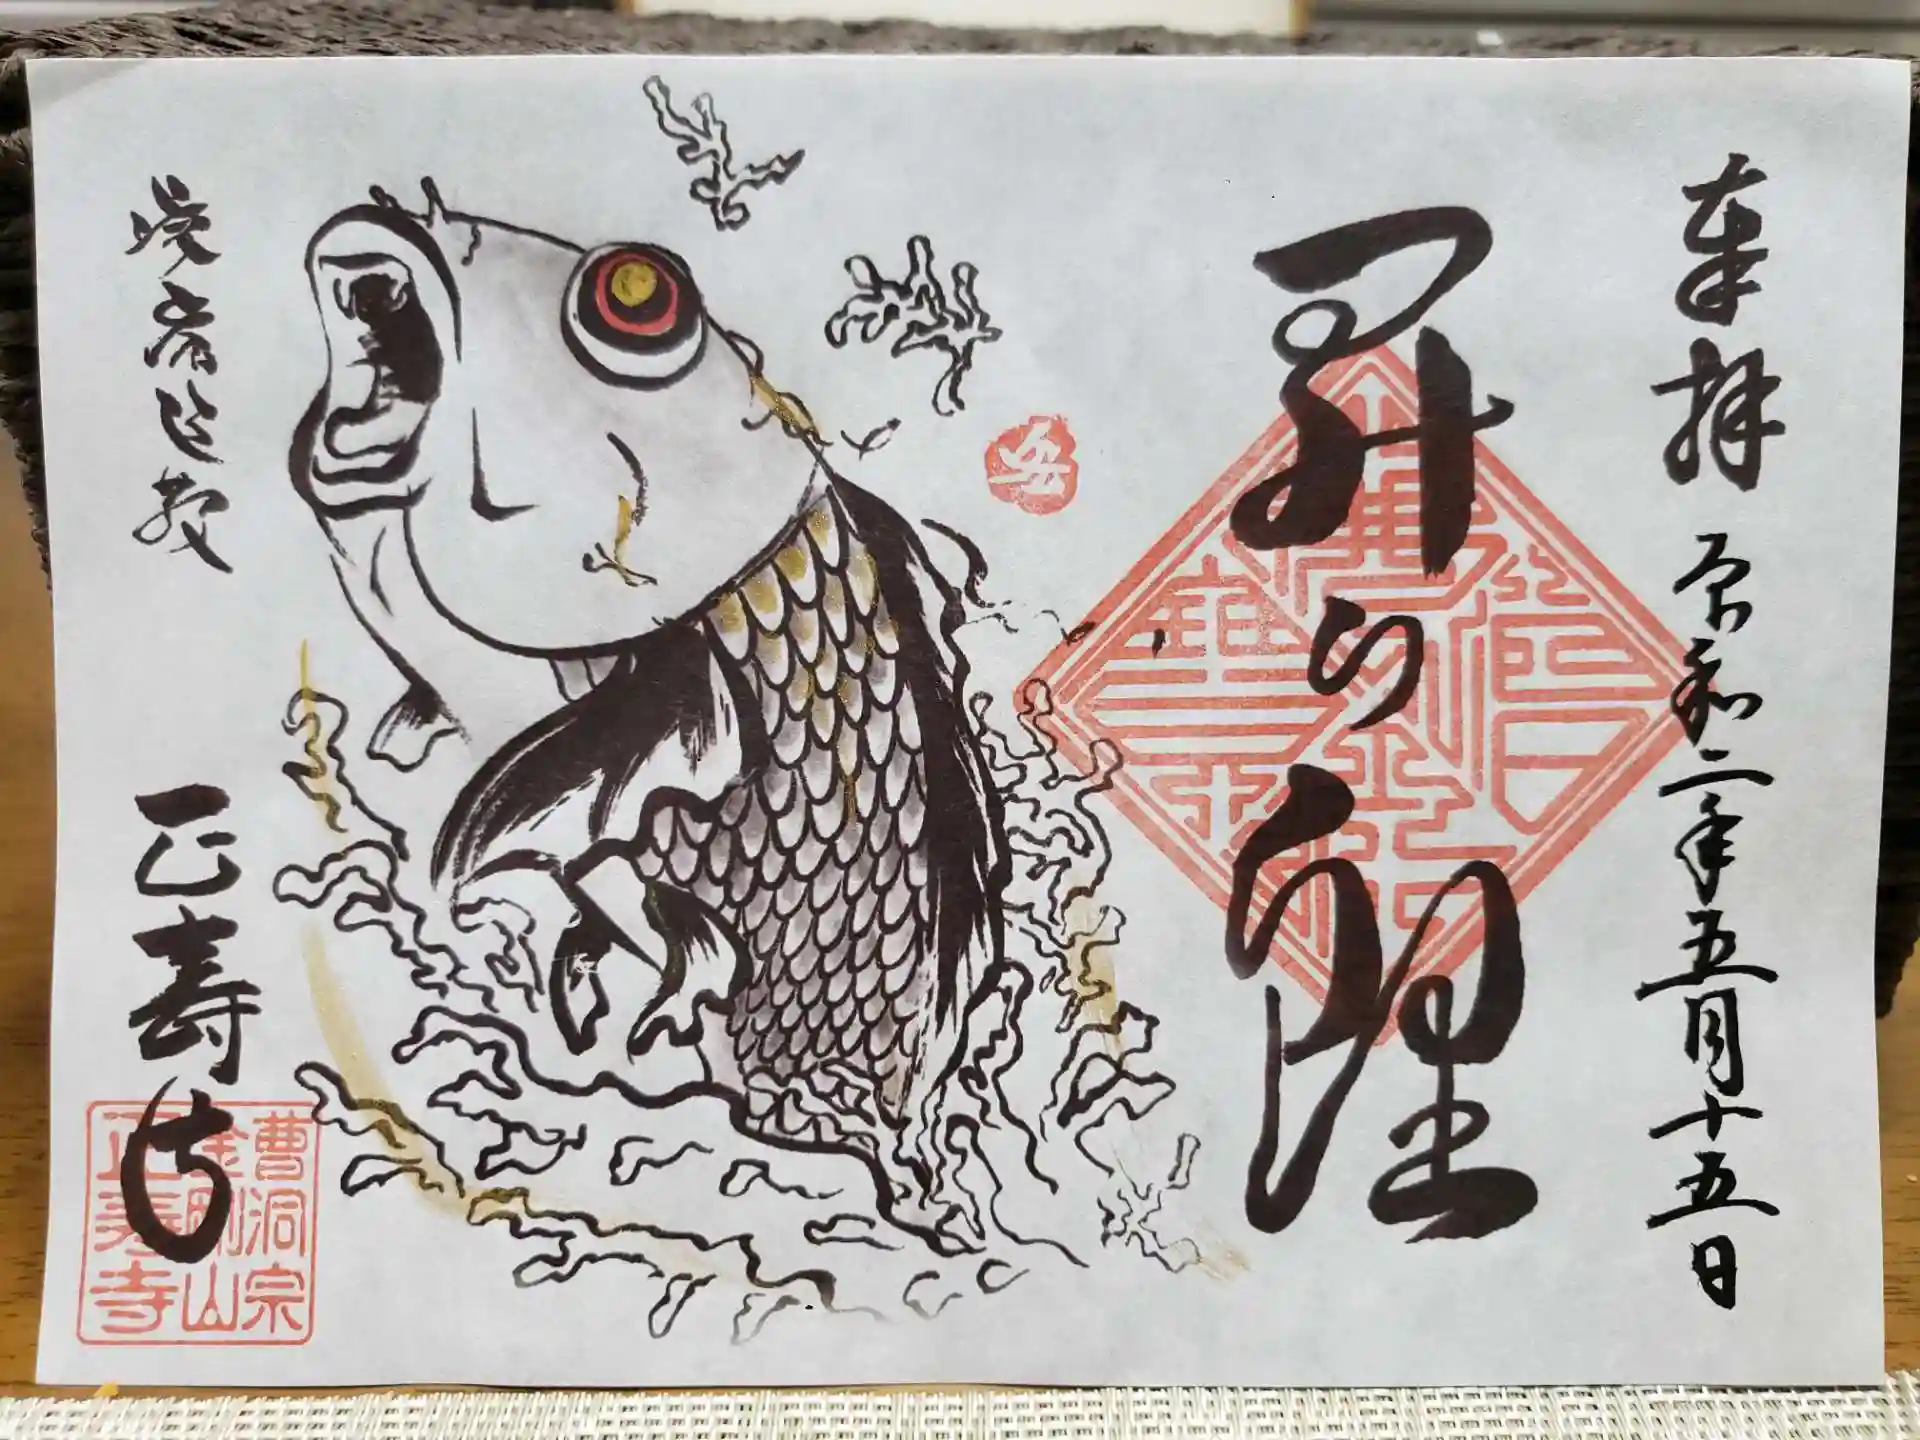 奉拝 令和二年五月十五日
昇り鯉
正壽寺
曹洞宗
金剛山
正寿寺